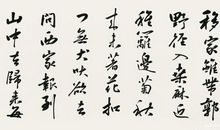 移家雖帶郭
野徑入桑麻近
種籬邊菊秋
來未著花扣
門無犬吠欲去
問西家報到
山中去歸來每